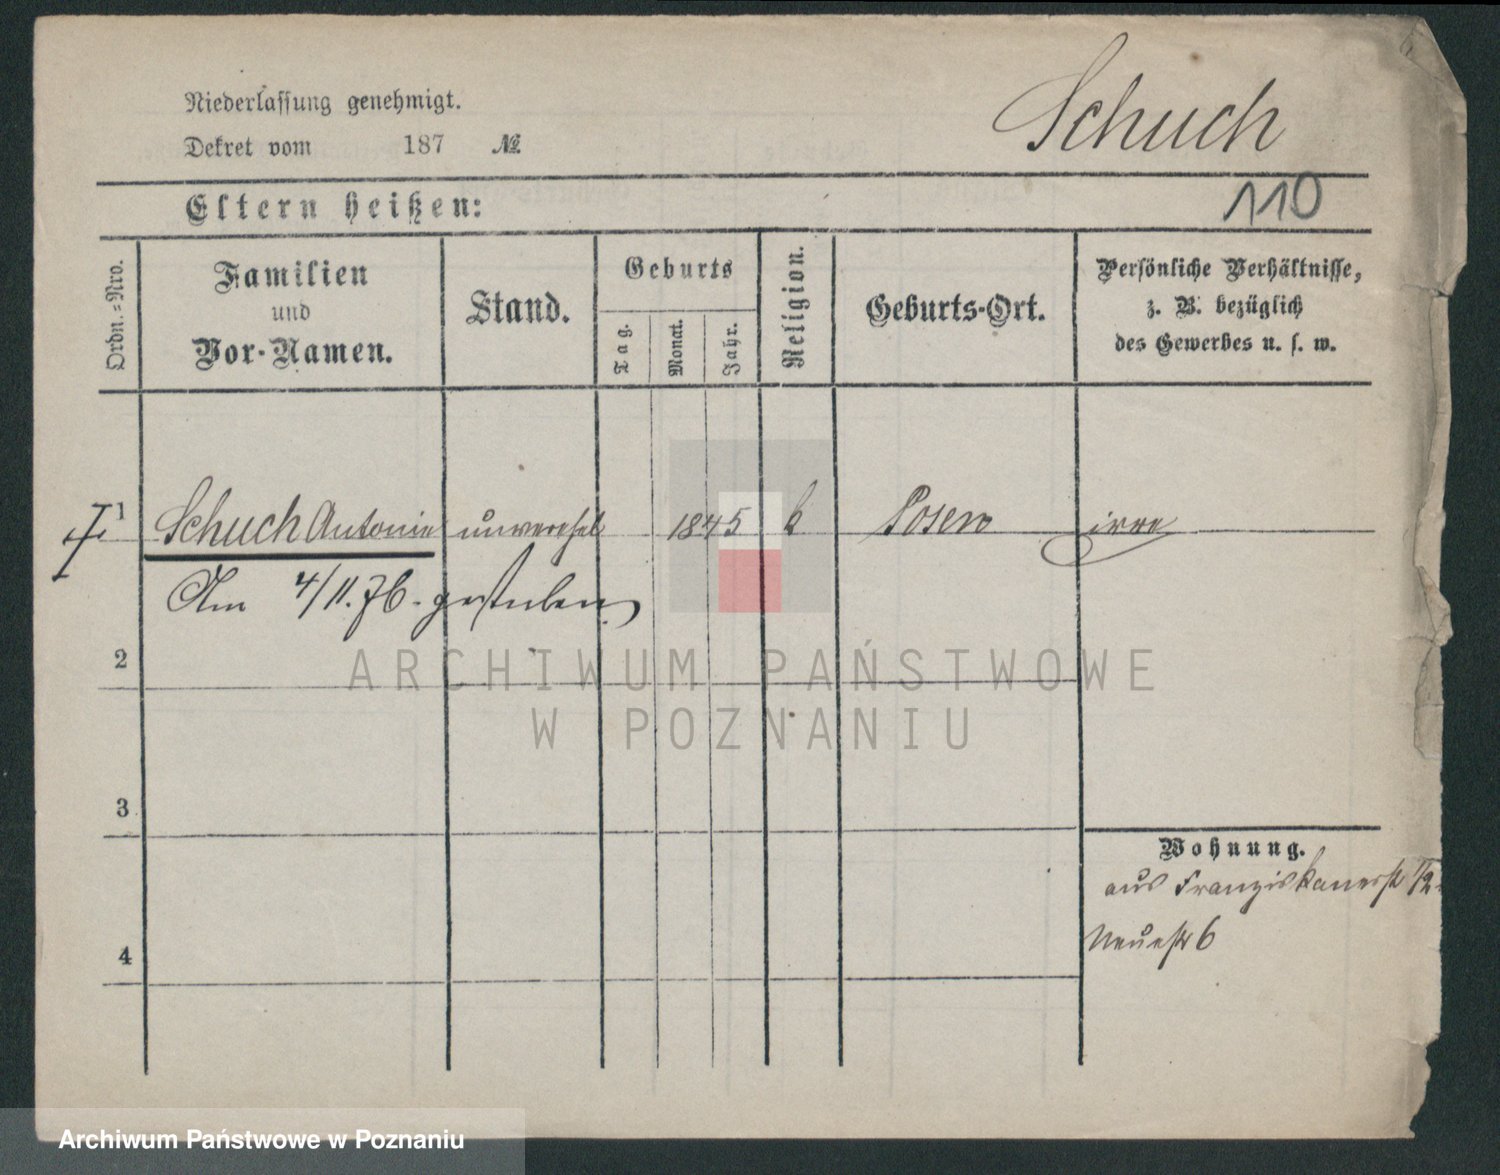 Schuch
Niederlassung genehmigt.
Dekret vom 187 №
110
Eltern heißen:
Ordn.-Nro.
Familien
und
Vor-Namen.
Stand.
Geburts
Tag.
Monat.
Jahr.
Religion.
Geburts-Ort.
Persönliche Verhältnisse,
z. B. bezüglich
des Gewerbes u. s. w.
1 Schuch Antonie unverehel 1845 k Posen irre
Am 4/11.76. gestorben
2
ARCHIWUM PAŃSTWOWE
W POZNANIU
3
Wohnung.
aus Franziskanerstr 1/2
Neuestr 6
4
Archiwum Państwowe w Poznaniu